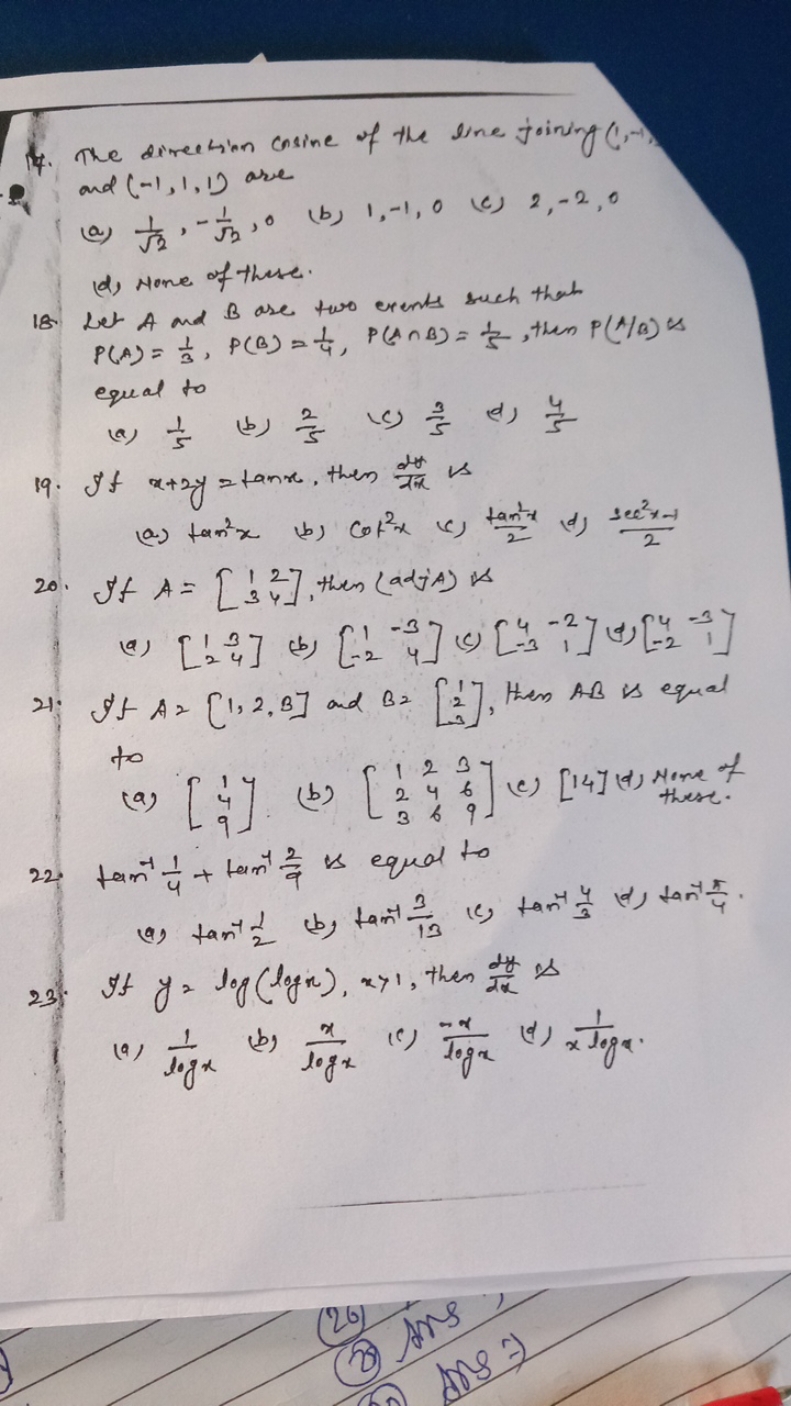 17. The direction cosine of the line joining (1,-1,
and (-1,1,1) are
(a) 1/√2, -1/√2, 0 (b) 1,-1,0 (c) 2,-2,0
(d) None of these.
18. Let A and B are two events such that
P(A) = 1/3, P(B) = 1/4, P(A∩B) = 1/5, then P(A/B) is
equal to
(a) 1/5 (b) 2/5 (c) 3/5 (d) 4/5
19. If x+2y = tanx, then dy/dx is
(a) tan²x (b) cot²x (c) tan²x/2 (d) sec²x-1/2
20. If A = [1 2 3 4], then (adjA) is
(a) [1 3 2 4] (b) [1 -3 -2 4] (c) [4 -2 -3 1] (d) [4 -3 -2 1]
21. If A = [1, 2, 3] and B = [1 2 3], then AB is equal
to
(a) [1 4 9]. (b) [1 2 3 2 4 6 3 6 9] (c) [14] (d) None of these.
22. tan⁻¹ 1/4 + tan⁻¹ 2/9 is equal to
(a) tan⁻¹ 1/2 (b) tan⁻¹ 3/13 (c) tan⁻¹ 4/3 (d) tan⁻¹ π/4.
23. If y = log(logx), x>1, then dy/dx is
(a) 1/logx (b) x/logx (c) -x/logx (d) 1/x logx.
(26)
Ans
Ans